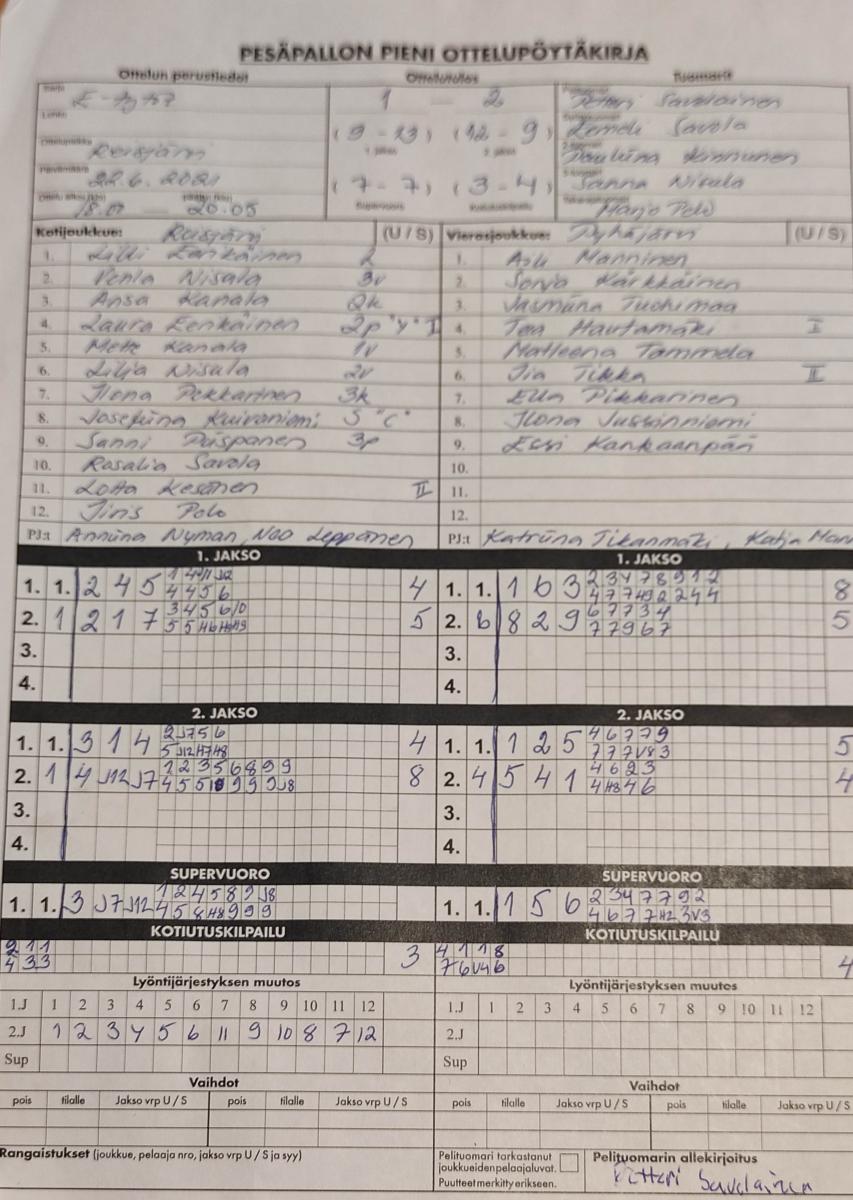 PESÄPALLON PIENI OTTELUPÖYTÄKIRJA
Ottelun perustiedot Ottelutulos Tuomarit
E-tytöt 1 - 2 Petteri Savolainen
(9 - 13) (12 - 9) Savola
Reisjärvi Pauliina Kinnunen
22.6.2021 (7 - 7) (3 - 4) Sanna Nisula
18.01 20.05 Marjo Polo
Kotijoukkue: Reisjärvi (U / S) Vierasjoukkue: Pyhäjärvi (U / S)
1. Lilli Eenkäinen 2 1. Manninen
2. Venla Nisula 3v 2. Sonja Kärkkäinen
3. Ansa Kanala 2k 3. Jasmiina Tuohimaa
4. Laura Eenkäinen 2p "V" I 4. Tea Hautamäki I
5. Mette Kanala 1v 5. Matleena Tammela
6. Lilja Nisula 2v 6. Iia Tikka II
7. Ilona Pekkarinen 3k 7. Ella Pikkarinen
8. Josefiina Kuivaniemi S "C" 8. Ilona Jussinniemi
9. Sanni Päispanen 3p 9. Essi Kankaanpää
10. Rosalia Savola 10.
11. Lotta Kesänen II 11.
12. Iiris Polo 12.
PJ:t Anniina Nyman, Noo Leppänen PJ:t Katriina Tikanmäki, Katja
1. JAKSO 1. JAKSO
1. 1. 2 4 5 4 1. 1. 1 6 3 2 3 4 7 8 9 1 2 8
4 4 5 6
2. 1 2 1 7 3 4 5 6 10 5 2. 6 8 2 9 6 7 7 3 4 5
7 7 9 6 7
3. 3.
4. 4.
2. JAKSO 2. JAKSO
1. 1. 3 1 4 2 J7 5 6 4 1. 1. 1 2 5 4 6 7 7 9 5
5 J12 H7 H8 7 7 7 V8 3
2. 1 4 J12 J7 1 2 3 5 6 8 9 9 8 2. 4 5 4 1 4 6 2 3 4
4 H8 4 6
3. 3.
4. 4.
SUPERVUORO SUPERVUORO
1. 1. 3 J7 J12 1 2 4 5 8 9 J8 1. 1. 1 5 6 2 3 4 7 7 9 2
4 5 8 H8 9 9 9 4 6 7 7 H2 3 V3
KOTIUTUSKILPAILU KOTIUTUSKILPAILU
2 1 1 3 4 1 1 8 4
4 3 3 7 6 V4 6
Lyöntijärjestyksen muutos Lyöntijärjestyksen muutos
1.J 1 2 3 4 5 6 7 8 9 10 11 12 1.J 1 2 3 4 5 6 7 8 9 10 11 12
2.J 1 2 3 4 5 6 11 9 10 8 7 12 2.J
Sup Sup
Vaihdot Vaihdot
pois tilalle Jakso vrp U / S pois tilalle Jakso vrp U / S pois tilalle Jakso vrp U / S pois tilalle Jakso vrp U / S
Rangaistukset (joukkue, pelaaja nro, jakso vrp U / S ja syy) Pelituomari tarkastanut Pelituomarin allekirjoitus
joukkueiden pelaajaluvat.
Puutteet merkitty erikseen. Petteri Savolainen